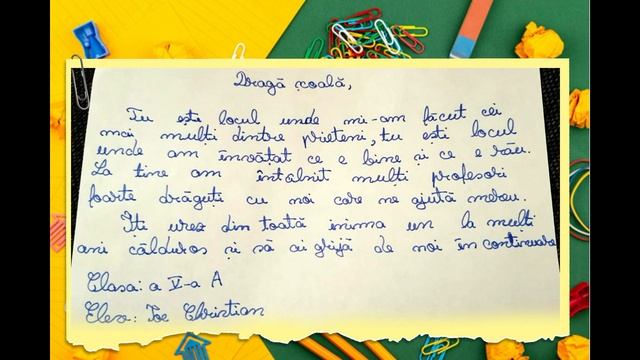 Dragă școală,
Tu ești locul unde mi-am făcut cei
mai mulți dintre prieteni, tu ești locul
unde am învățat ce e bine și ce e rău.
La tine am întâlnit mulți profesori
foarte drăguți cu noi care ne ajută mereu.
Îți urez din toată inima un la mulți
ani călduros și să ai grijă de noi în continuare
Clasa: a V-a A
Elev: Toe Christian